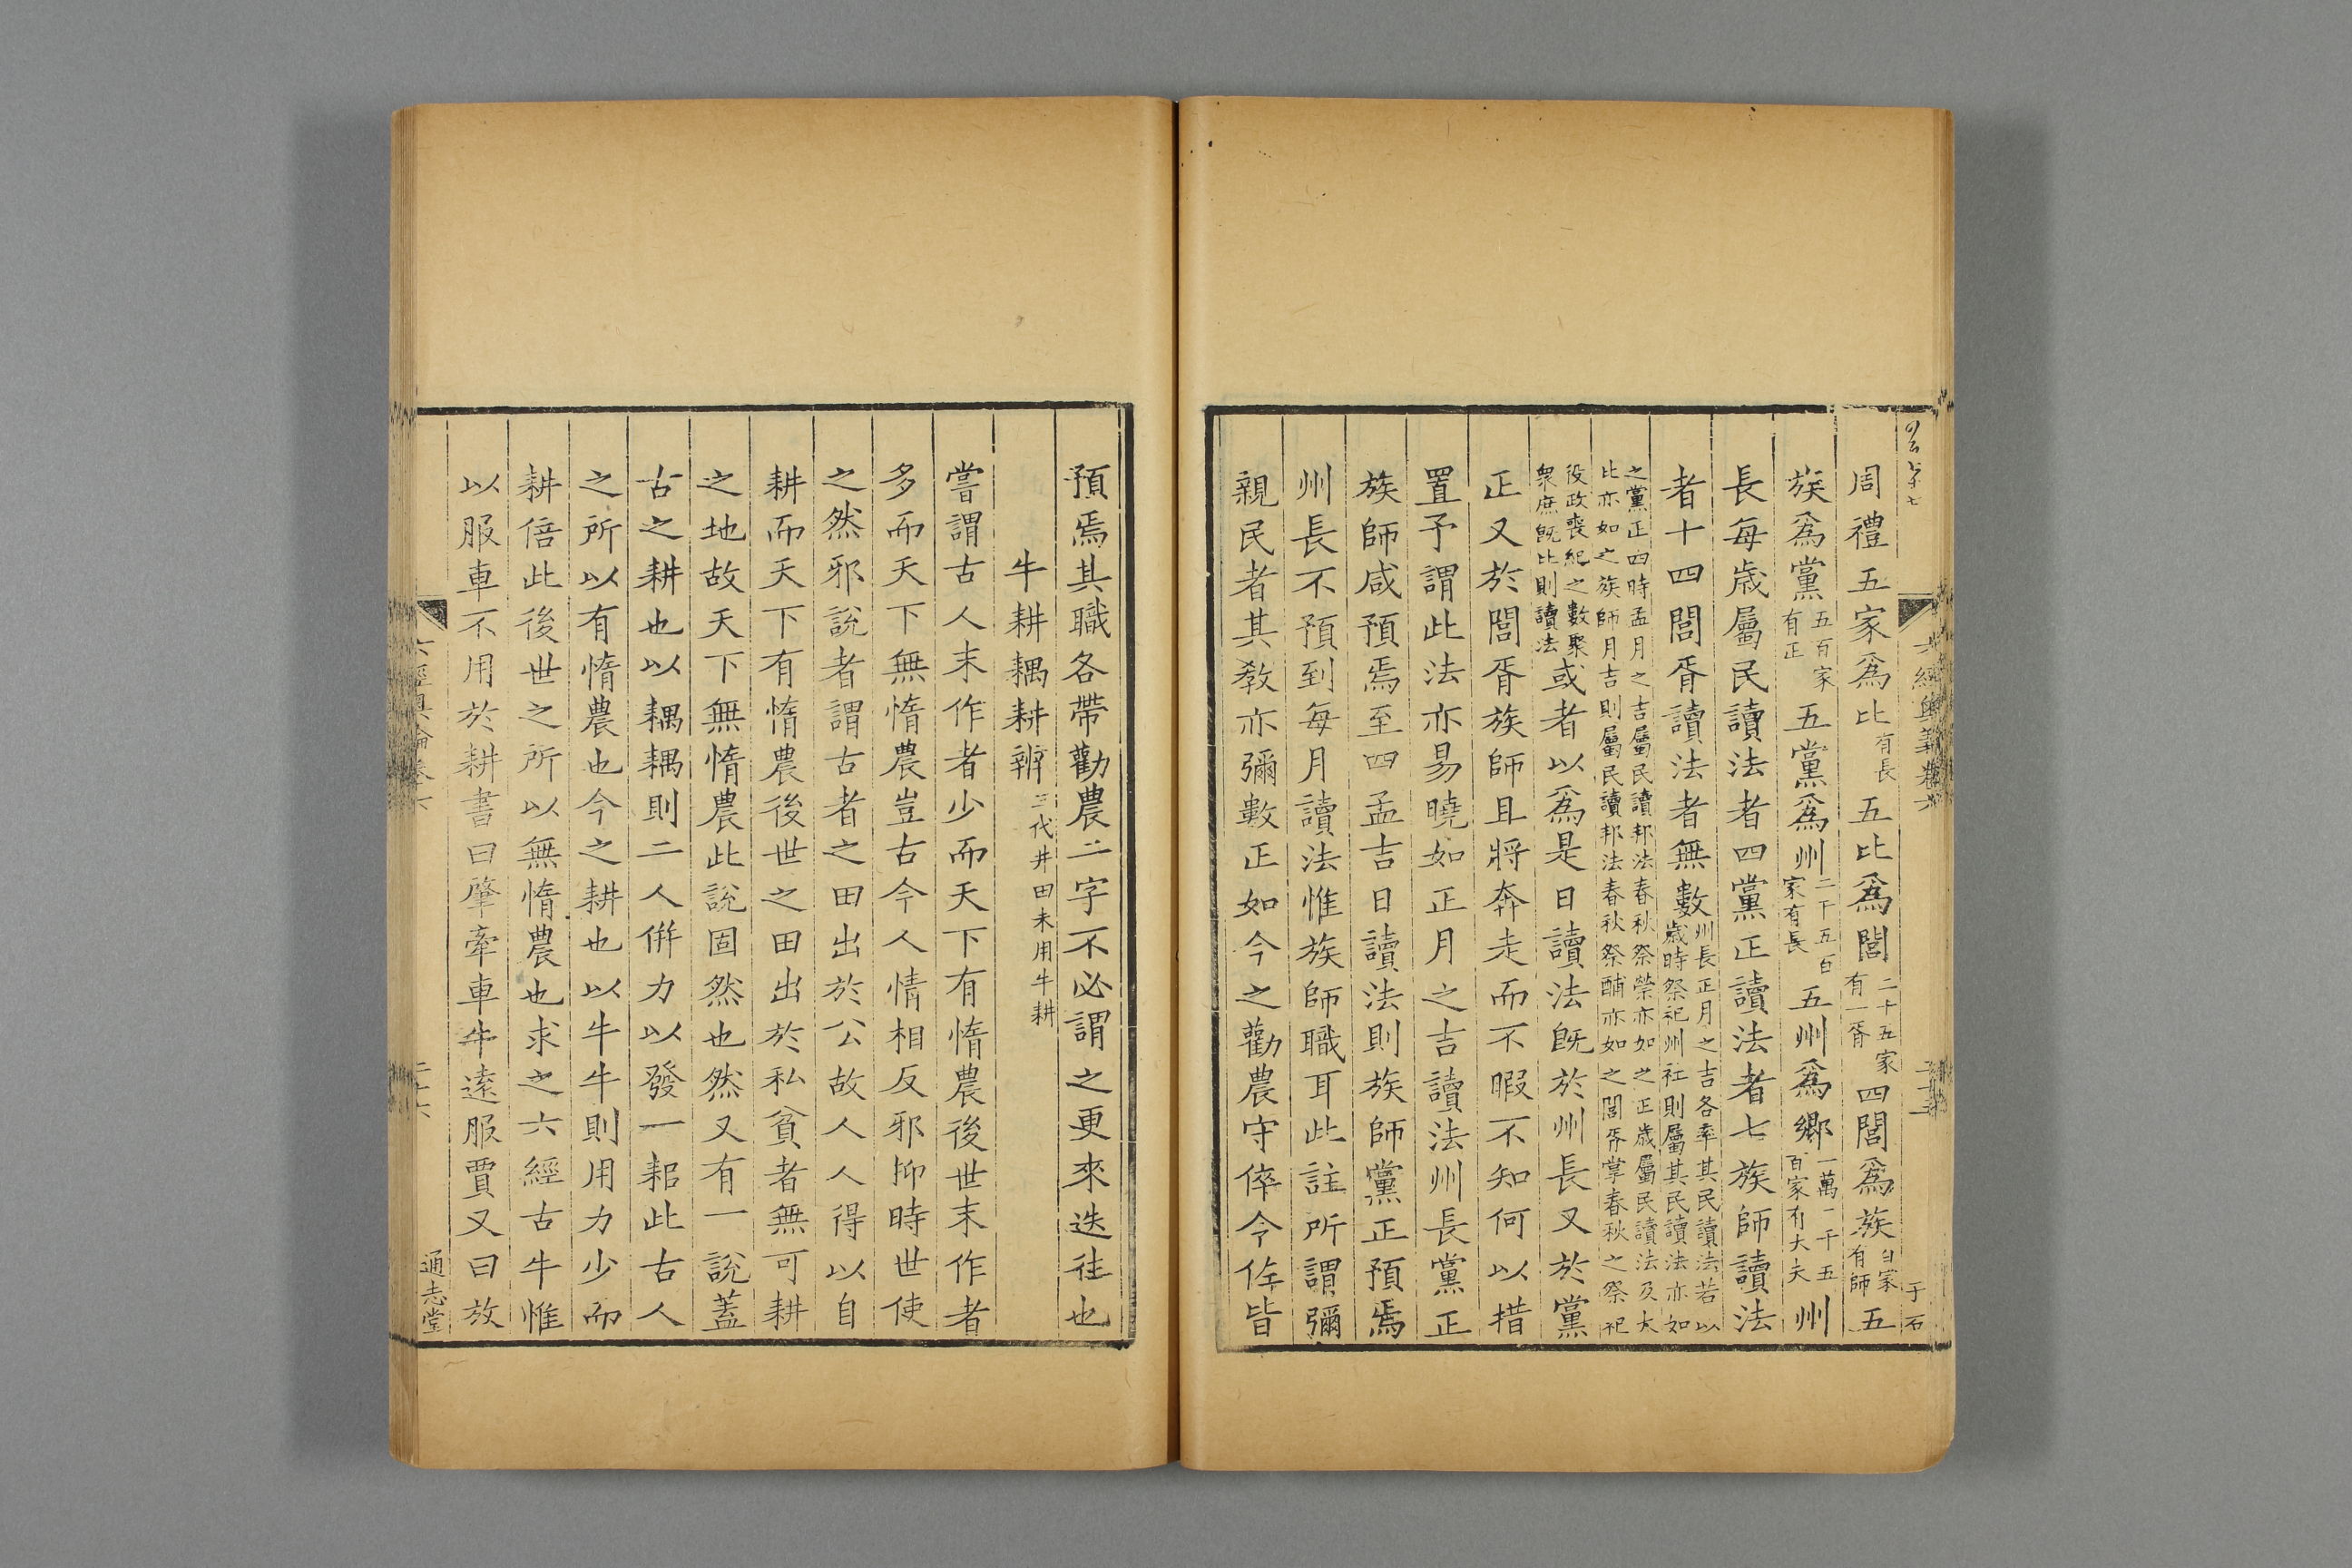 周禮五家爲比有長五比爲閭二十五家有一胥四閭爲族百家有師五
族爲黨五百家有正五黨爲州二千五百家有長五州爲鄉一萬二千五百家有大夫州
長每歲屬民讀法者四黨正讀法者七族師讀法
者十四閭胥讀法者無數州長正月之吉各率其民讀法若以歲時祭祀州社則屬其民讀法亦如
之黨正四時孟月之吉屬民讀邦法春秋祭禜亦如之正歲屬民讀法及大比亦如之族師月吉則屬民讀邦法春秋祭酺亦如之閭胥掌春秋之祭祀
役政喪紀之數聚衆庶旣比則讀法或者以爲是日讀法旣於州長又於黨
正又於閭胥族師且將奔走而不暇不知何以措
置予謂此法亦易曉如正月之吉讀法州長黨正
族師咸預焉至四孟吉日讀法則族師黨正預焉
州長不預到每月讀法惟族師職耳此註所謂彌
親民者其教亦彌數正如今之勸農守倅令佐皆
于石
預焉其職各帶勸農二字不必謂之更來迭往也
牛耕耦耕辨三代井田未用牛耕
嘗謂古人末作者少而天下有惰農後世末作者
多而天下無惰農豈古今人情相反邪抑時世使
之然邪說者謂古者之田出於公故人人得以自
耕而天下有惰農後世之田出於私貧者無可耕
之地故天下無惰農此說固然也然又有一說蓋
古之耕也以耦耦則二人併力以發一耜此古人
之所以有惰農也今之耕也以牛牛則用力少而
耕倍此後世之所以無惰農也求之六經古牛惟
以服車不用於耕書曰肇牽車牛遠服賈又曰放
六經奧論卷六
二十六
通志堂